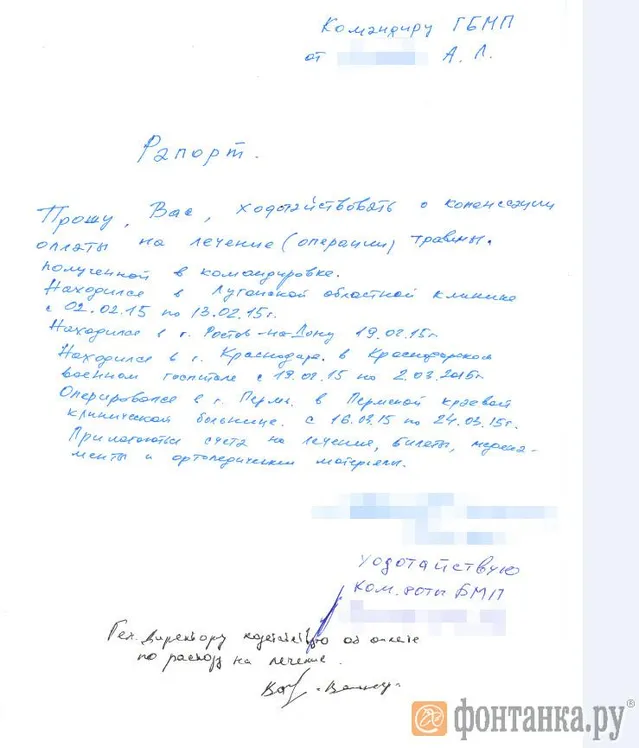 Командиру ГБМП
от А. Л.
Рапорт.
Прошу, Вас, ходотайствовать о компенсации
оплаты на лечение (операции) травмы.
полученной в командировке.
Находился в Луганской областной клинике
с 02.02.15 по 13.02.15г.
Находился в г. Ростов-на-Дону 19.02.15г
Находился в г. Краснодаре. в Краснодарском
военном госпитале с 19.02.15 по 2.03.2015г
Оперировался в г. Пермь. в Пермской краевой
клинической больнице. с 16.03.15 по 24.03.15г.
Прилагаются счета на лечения, билеты, медека-
менты и ортопедические материалы.
Ходотайствую
Ком. роты БМП
Ген. директору ходотайствую об оплате
по расходу на лечение.
фонтанка.ру